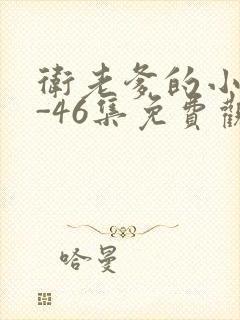 衛老爹的小
-46集免費觀
哈曼